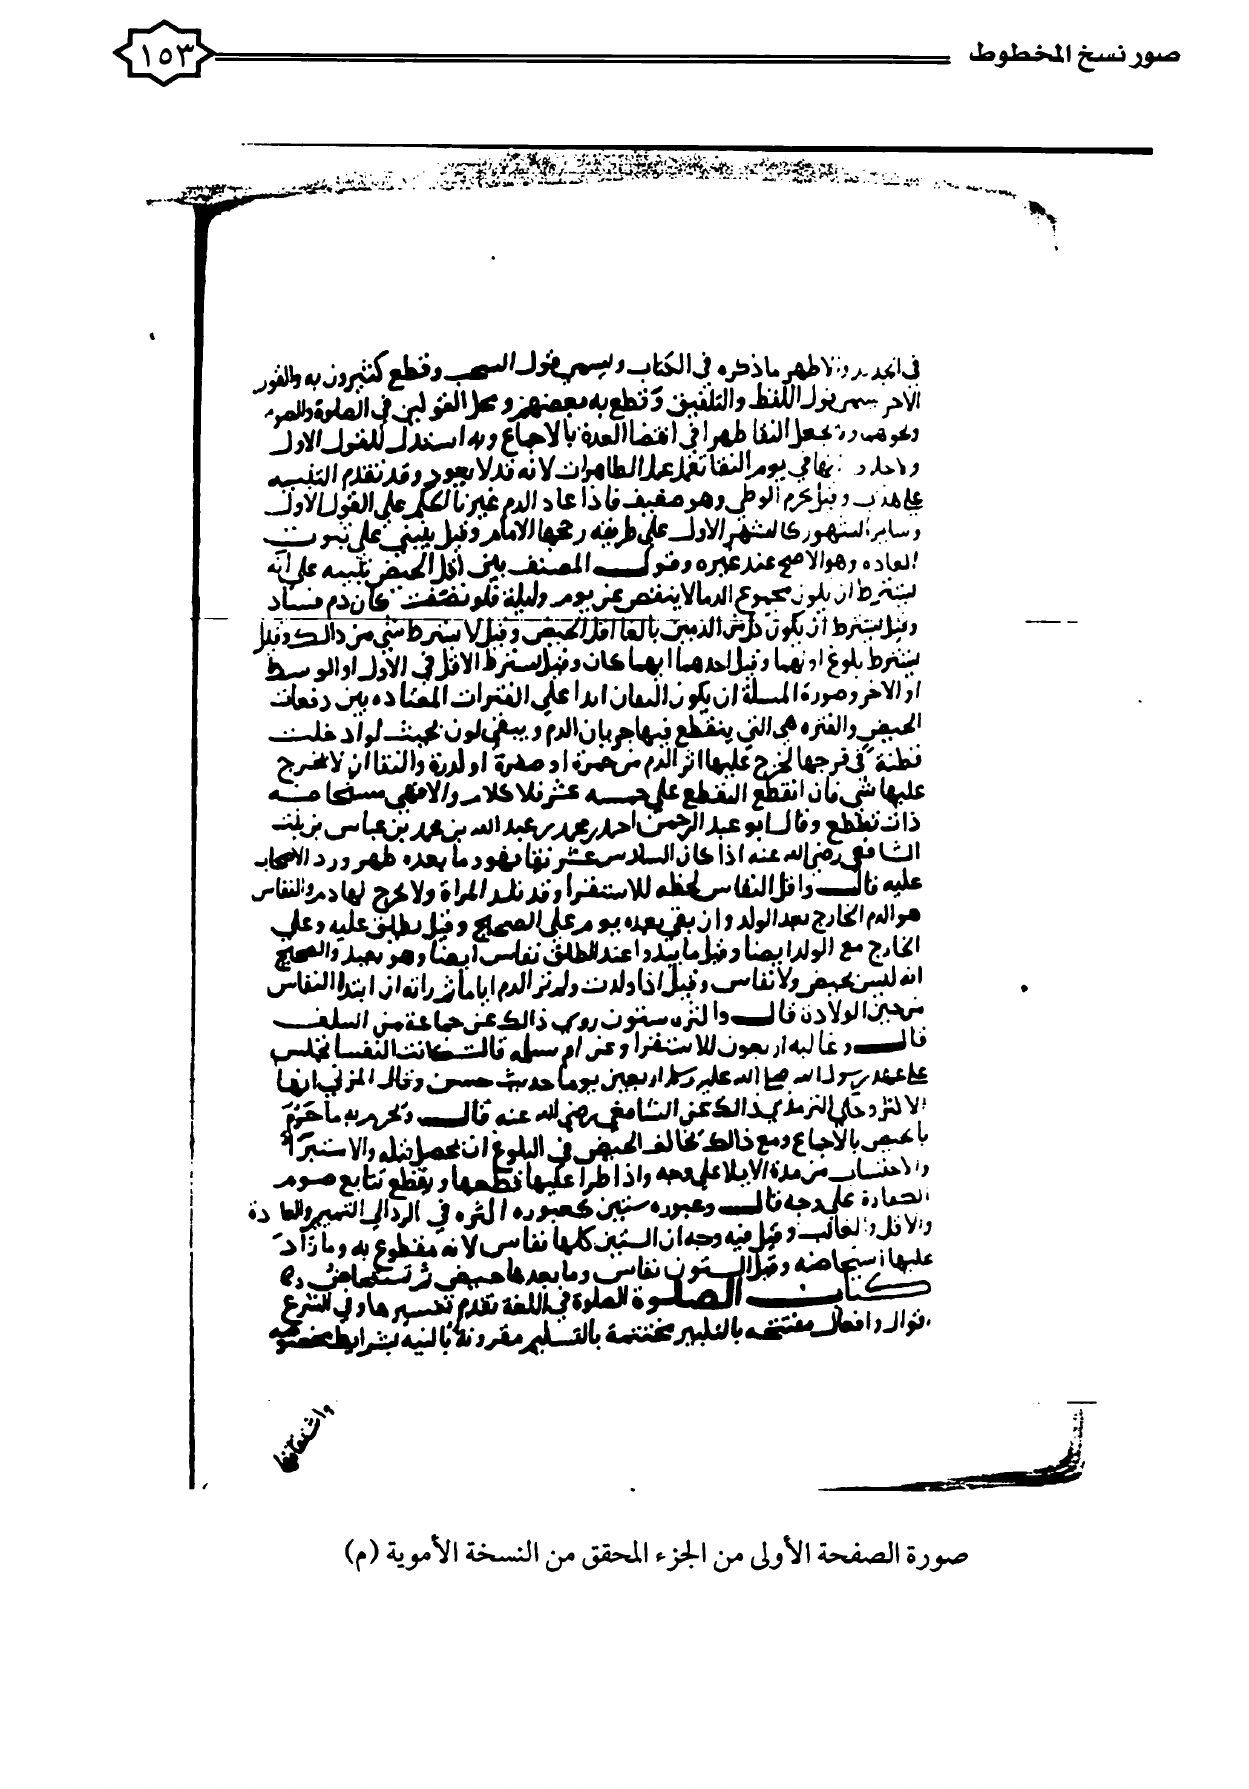 صور نسخ المخطوط
١٥٣
في الجديد والاظهر ما ذكره في الكتاب ويسمى قول السحب وقطع كثيرون به والقول
الاخر يسمى قول اللفظ والتلفيق وقطع به بعضهم ومحل القولين في الصلوة والصوم
ونحوهما ولا يجعل النقا طهرا في انقضا العدة بالاجماع وبه استدل للقول الاول
في يوم النقا تعمل عمل الطاهرات لانه قد لا يعود وقد تقدم التنبيه
على هذا وقيل يحرم الوطى وهو ضعيف فاذا عاد الدم غيرنا الحكم على القول الاول
وساير الشهور كالشهر الاول على طريقه رجحها الامام وقيل ينبني على ثبوت
العاده وهو الاصح عند غيره وقول المصنف بين اقل الحيض تنبيه على انه
يشترط ان يكون مجموع الدما لا ينقص عن يوم وليلة فلو نقصت كان دم فساد
وقيل يشترط ان يكون كل من الدمين بالغا اقل الحيض وقيل لا يشترط شي من ذالك وقيل
يشترط بلوغ اولهما وقيل احدهما ايهما كان وقيل يشترط الاقل في الاول او الوسط
او الاخر وصورة المسلة ان يكون النقان ابدا على الفترات المعتاده بين دفعات
الحيض والفتره هي التي ينقطع فيها جريان الدم ويبقى لون بحيث لو ادخلت
قطنة في فرجها لخرج عليها اثر الدم من حمرة او صفرة او كدرة والنقا ان لا يخرج
عليها شي فان انقطع التقطع على خمسه عشر فلا كلام والا فهي مستحاضه
ذات تقطع وقال ابو عبد الرحمن احمد بن محمد بن عبد الله بن محمد بن عباس بن بنت
الشافعي رضي الله عنه اذا كان السادس عشر نقا فهو وما بعده طهر ورد الاصحاب
عليه قال واقل النفاس لحظه للاستقرا وقد تلد المراة ولا يخرج لها دم والنفاس
هو الدم الخارج بعد الولد وان بقي بعده يوم على الصحيح وقيل يطلق عليه وعلى
الخارج مع الولد ايضا وقيل ما يبدوا عند الطلق نفاس ايضا وهو بعيد والصحيح
انه ليس بحيض ولا نفاس وقيل اذا ولدت ولم تر الدم اياما ثم راته ان ابتدا النفاس
من حين الولادة قال واكثره ستون روي ذالك عن جماعة من السلف
قال وغالبه اربعون للاستقرا وعن ام سلمه قالت كانت النفسا تجلس
على عهد رسول الله صلى الله عليه وسلم اربعين يوما حديث حسن وقال المزني انها
الاكثر وحكى الترمذي ذالك عن الشافعي رضي الله عنه قال ويحرم به ما حرم
بالحيض بالاجماع ومع ذالك يخالف الحيض في البلوغ ان يحصل قبله والاستبرأ
والاحتساب من مدة الايلا على وجه واذا طرا عليها قطعها ويقطع تتابع صوم
الكفارة على وجه قال وعبوره ستين كعبوره اكثره في الرد الى التمييز والعادة
والاقل والغالب وقيل فيه وجه ان الستين كلها نفاس لانه مقطوع به وما زاد
عليها استحاضه وقيل الستون نفاس وما بعدها حيض ثم تستحاض
كتاب الصلوة الصلوة في اللغة تقدم تفسيرها وفي الشرع
اقوال وافعال مفتتحه بالتكبير مختتمة بالتسليم مقرونة بالنيه بشرايط مخصوصه
واشتقاقها
صورة الصفحة الأولى من الجزء المحقق من النسخة الأموية (م)